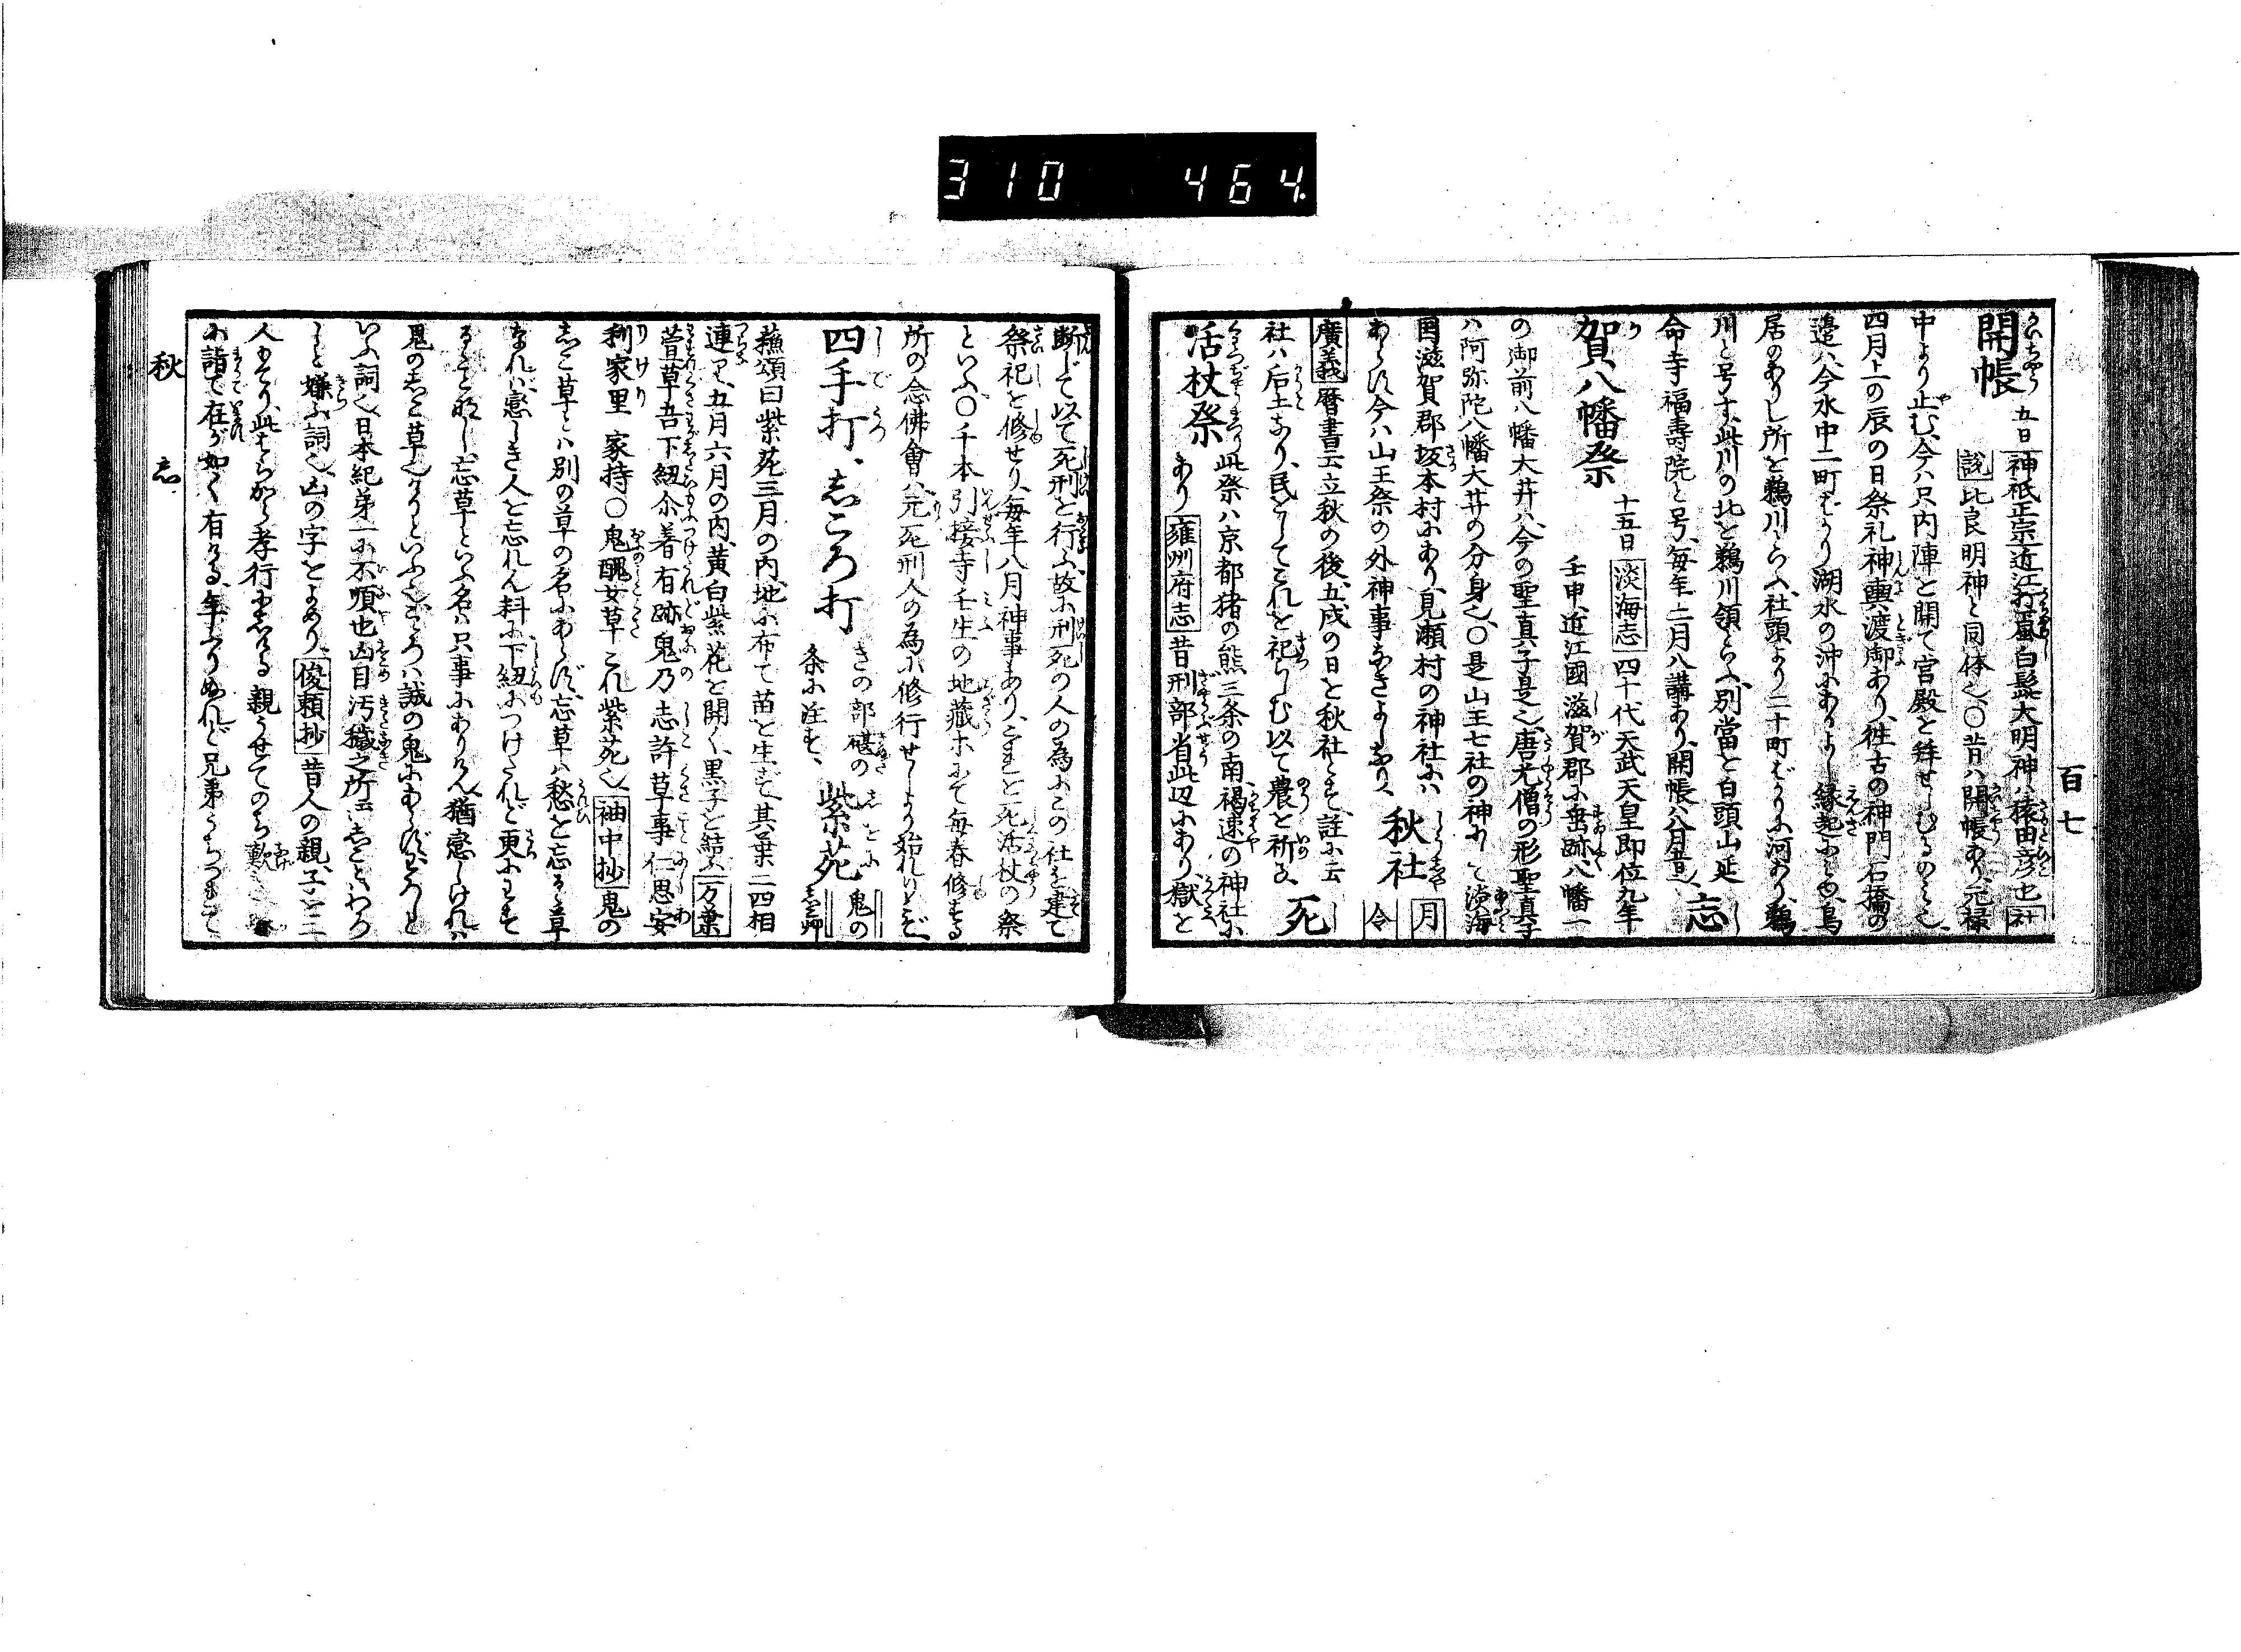 310 464.
百七
開帳 五日 神祇正宗 近江打嵐白髭大明神ハ猿田彦也 社
説 比良明神と同体也〇昔ハ開帳あり元禄
中より止む、今ハ只内陣と開て宮殿と拜せしむるのミ也
四月上の辰の日祭礼神輿渡御あり、往古の神門石橋の
邉ハ今水中二町ばかり湖水の沖にあるよし縁起に也鳥
居のありし所と鵜川といふ社頭より二十町ばかりに河あり鵜
川と号す、此川の北と鵜川領といふ、別當と白頭山延
命寺福壽院と号、毎年二月八講あり、開帳ハ八月 志
賀八幡祭 十五日 淡海志 四十代天武天皇即位九年
壬申近江國滋賀郡に垂跡八幡一
の御前八幡大井ハ今の聖真子是也唐尤僧の形聖真子
ハ阿弥陀八幡大井の分身也〇是山王七社の神にて淡海
国滋賀郡坂本村にあり、見瀬村の神社にハ
あらず今ハ山王祭の外神事なきよしなり、 秋社 月令
廣義 暦書云立秋の後、五戊の日と秋社とす、註に云
社ハ后土なり、民としてこれと祀らしむ以て農と祈る、 死
活杖祭 此祭ハ京都猪の熊三条の南褐逮の神社に
あり 雍州府志 昔刑部省此辺にあり、獄と
断じて以て死刑と行ふ、故に刑死の人の為にこの社を建て
祭祀と修せり、毎年八月神事あり、これと死活杖の祭
といふ〇千本引接寺壬生の地藏ホにて毎春修する
所の念佛會ハ元死刑人の為に修行せしより始れりとぞ、
四手打、志ころ打 きの部碪の条に注す、 紫苑 鬼の志こ草
蘓頌曰紫苑三月の内、地に布て苗と生ず、其葉二四相
連り、五月六月の内、黄白紫花と開く、黒子と結ふ 万葉
萱草吾下紐尓着有跡鬼乃志許草事仁思安
利家里 家持〇鬼醜女草これ紫苑也 袖中抄 鬼の
志こ草とハ別の草の名にあらず、忘草ハ愁と忘るゝ草
なれハ恋しき人と忘れん料に下紐につけたれど更にわす
るゝこと能し、忘草といふ名ハ只事にありけん、猶恋しけれハ
鬼の志こ草なりけりといふ也、志こといふハ誠の鬼にあらず、志ころと
いふ詞也日本紀弟一に不順也凶目汚穢之所云志ことわろ
しと嫌ふ詞也、凶の字とよめり 俊頼抄 昔人の親、子と三
人もてり、此志らがら孝行にしける 親うせてのち歎
に詣で在が如く有ける、年ふりぬれど兄弟うちつれて
秋 志